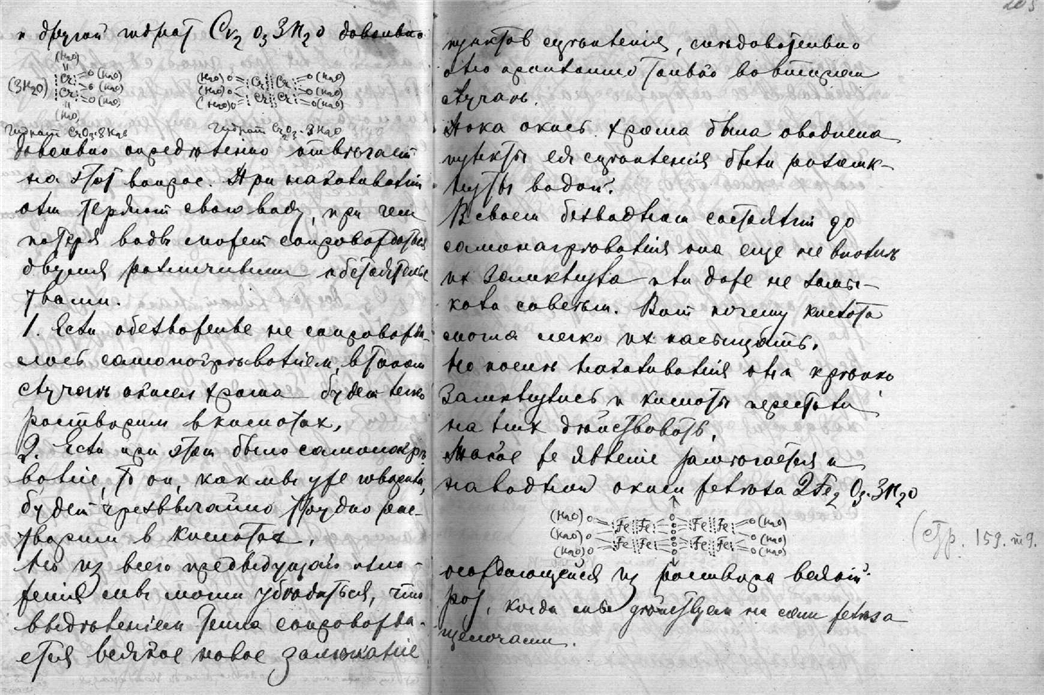 и другой гидрат Cr2 O3 3H2O довольно
(H2O)
(3H2O) Cr O (H2O)
Cr O (H2O)
(H2O)
(H2O) O Cr Cr O (H2O)
(H2O) O O (H2O)
(H2O) O Cr Cr O (H2O)
гидрат Cr2O3 гидрат
довольно определенно отвечает
на этот вопрос. При накаливании
они теряют свою воду, при чем
потеря воды может сопровождаться
двумя различными обстоятель
ствами.
1. Если обезвожение не сопровожда-
лось самонагрѣванием, в таком
случаѣ окись хрома будет легко
растворим в кислотах.
2. Если при этом было самонагрѣ
вание, то он, как мы уже говорили,
будет чрезвычайно трудно рас-
творим в кислотах.
Но из всего предыдущаго изло-
жения мы могли убѣдиться, что
выдѣлением тепла сопровожда-
ется всякое новое замыкание
пунктов сцѣпления, слѣдовательно
оно произошло только во втором
случаѣ.
Пока окись хрома была оводнена
пункты ея сцѣпления были разомк-
нуты водой.
В своем безводном состоянии до
самонагрѣвания она еще не вполнѣ
их замкнула или даже не замы-
кала совсѣм. Вот почему кислота
могла легко их насыщать.
Но послѣ накаливания они крѣпко
замкнулись и кислоты перестали
на них дѣйствовать.
Такое же явление замѣчается и
на водной окиси желѣза 2Fe2 O3 3H2O
(H2O) O Fe Fe O Fe Fe O (H2O)
(H2O) O O (H2O)
(H2O) O Fe Fe O Fe Fe O (H2O)
(Стр. 159. т 9.
осаждающейся из раствора всякий
раз, когда мы дѣйствуем на соли желѣза
щелочами.